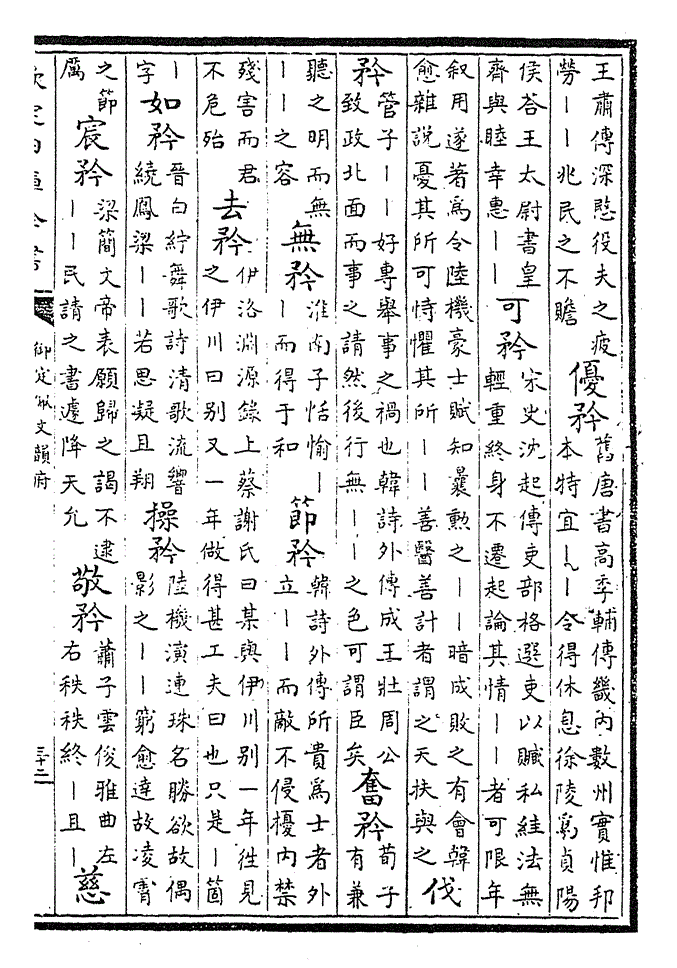 王肅傳深愍役夫之疲
勞——兆民之不贍
優矜
舊唐書高季輔傳畿内數州實惟邦
本特宜——令得休息徐陵為貞陽
侯荅王太尉書皇
齊與睦幸惠——
可矜
宋史沈起傳吏部格選吏以贓私絓法無
輕重終身不遷起論其情——者可限年
叙用遂著為令陸機豪士賦知曩勲之——暗成敗之有會韓
愈雜說憂其所可恃懼其所——善醫善計者謂之天扶與之
伐
矜
管子——好專舉事之禍也韓詩外傳成王壯周公
致政北面而事之請然後行無——之色可謂臣矣
奮矜
荀子
有兼
聽之明而無
——之容
無矜
淮南子恬愉—
—而得于和
節矜
韓詩外傳所貴為士者外
立——而敵不侵擾内禁
殘害而君
不危殆
去矜
伊洛淵源錄上蔡謝氏曰某與伊川別一年徃見
之伊川曰別又一年做得甚工夫曰也只是—箇
—
字
如矜
晉白紵舞歌詩清歌流響
繞鳳梁——若思凝且翔
操矜
陸機演連珠名勝欲故偶
影之——窮愈達故凌霄
之節
厲
宸矜
梁簡文帝表願歸之謁不逮
——民請之書遽降天允
敬矜
蕭子雲俊雅曲左
右秩秩終—且—
慈
欽定四庫全書
御定佩文韻府
三十二